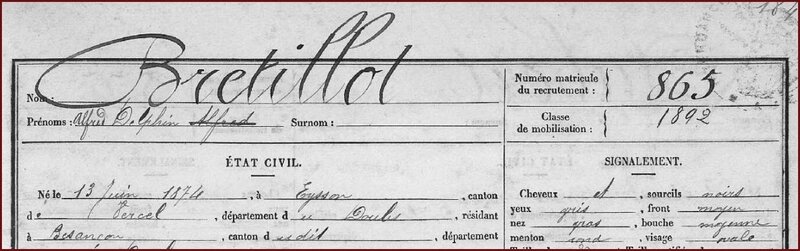 184
Bretillot
Nom :
Prénoms : Alfred Delphin Alfred Surnom :
Numéro matricule du recrutement : 865
Classe de mobilisation : 1892
ÉTAT CIVIL.
Né le 13 Juin 1874, à Eysson, canton
de Vercel, département du Doubs, résidant
à Besançon, canton dudit, département
SIGNALEMENT.
Cheveux et sourcils noirs
yeux gris, front moyen
nez gros, bouche moyenne
menton rond, visage ovale